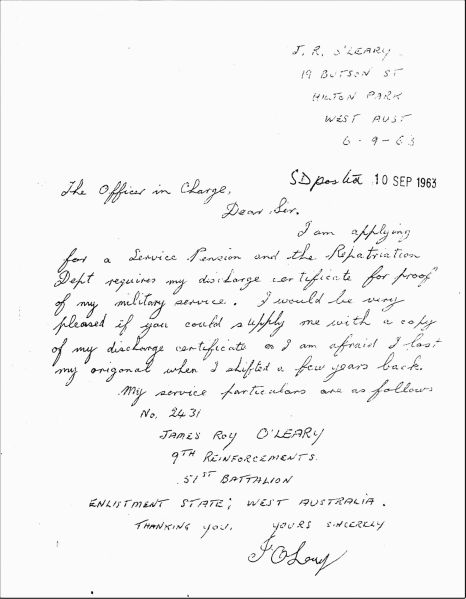 J. R. O'LEARY
19 BUTSON ST
HILTON PARK
WEST AUST
6-9-63
SD posted 10 SEP 1963
The Officer in Charge,
Dear Sir.
I am applying
for a Service Pension and the Repatriation
Dept requires my discharge certificate for proof
of my military service. I would be very
pleased if you could supply me with a copy
of my discharge certificate as I am afraid I lost
my origonal when I shifted a few years back.
My service particulars are as follows
No. 2431
JAMES ROY O'LEARY
9TH REINFORCEMENTS.
51ST BATTALION
ENLISTMENT STATE; WEST AUSTRALIA.
THANKING YOU. YOURS SINCERELY
J O'Leary